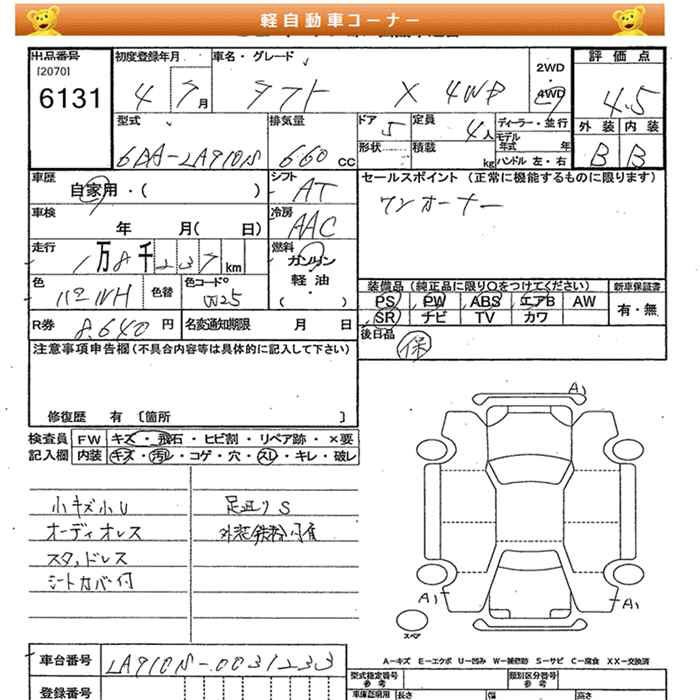 軽自動車コーナー
出品番号
[2070]
6131
初度登録年月
4 7月
車名・グレード
タフト X 4WD
2WD
4WD
評価点
4.5
外装 内装
B B
型式
6BA-LA910S
排気量
660 CC
ドア 5
定員 4人
形状
積載 kg
ディーラー・並行
モデル年式 年
ハンドル 左・右
車歴
自家用・( )
シフト
AT
車検
年 月( 日)
冷房
AAC
走行
1万8千237km
燃料
ガソリン
軽油
( ・ )
色
パールH
色替
色コードNo
W25
R券
8,640円
名変通知期限 月 日
セールスポイント (正常に機能するものに限ります)
ワンオーナー
装備品 (純正品に限り○をつけてください)
新車保証書
PS PW ABS エアB AW
SR ナビ TV カワ
有・無
後日品
保
注意事項申告欄(不具合内容等は具体的に記入して下さい)
修復歴 有 〔箇所 〕
検査員
記入欄
FW キズ・飛石・ヒビ割・リペア跡・×要
内装 キズ・汚レ・コゲ・穴・スレ・キレ・破レ
小キズ小U
オーディオレス
スタッドレス
シートカバー付
足廻りS
外装鉄粉有
A1
A1
A1
スペア
車台番号
LA910S-0031233
登録番号
A-キズ E-エクボ U-凹み W-補修跡 S-サビ C-腐食 XX-交換済
型式指定番号
参考
類別区分番号
参考
車庫証明用
長さ
幅
高さ